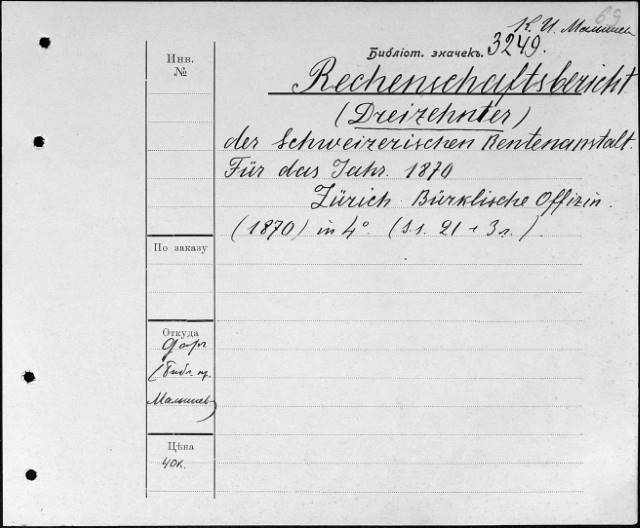 69
К. И. Малышев
Библіот. значекъ. 3249.
Инв.
№
Rechenschaftsbericht
(Dreizehnter)
der Schweizerischen Rentenanstalt.
Für das Jahr. 1870
Zürich Bürklische Offizin.
(1870) in 4° (S.s. 21 + 3 л.)
По заказу
Откуда
дар
(библ. пр.
Малышев)
Цѣна
40к.